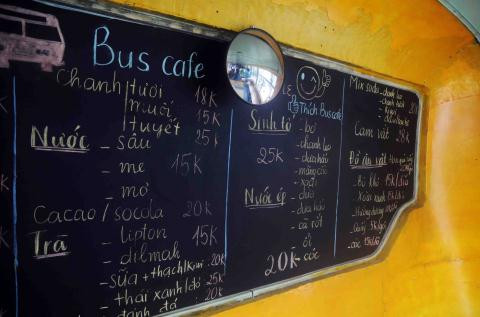 Bus cafe
Chanh/tươi 18K
muối 15K
tuyết 25K
Nước - sấu
- me 15K
- mơ
Cacao/socola 20K
Trà - lipton 15K
- dilmah
- sữa + thạch/ 20K
- thái xanh/đỏ 25K
- đá 20K
Thích Bus cafe
Sinh tố - bơ
- chanh leo
25K - dưa hấu
- mãng cầu
- xoài
Nước ép - dứa
- dưa hấu
- cà rốt
- ổi
20K - cóc
Mix soda - chanh leo
Cam vắt 28K
Đồ ăn vặt
- Bò khô 15K
- Hướng dương